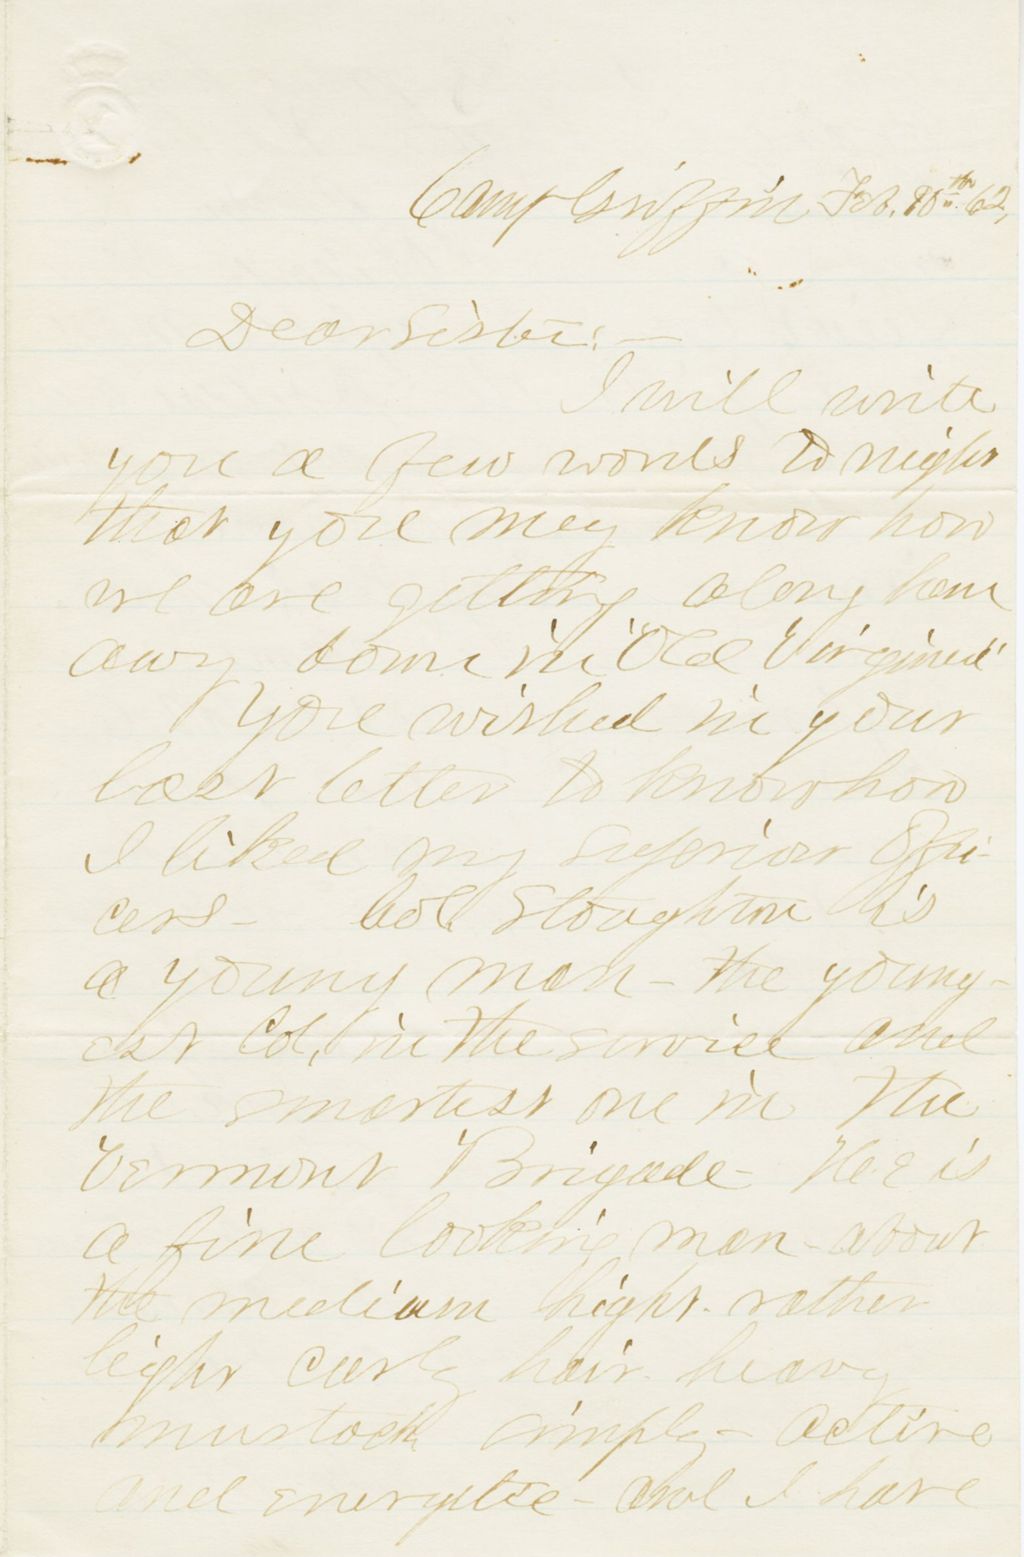 Camp Griffin Feb. 10th 62,
Dear Sister:—
I will write
you a few words to night
that you may know how
we are getting along here
away down in "Old Virginia"
You wished in your
last letter to know how
I liked my superior Offi-
cers— Col. Stoughton is
a young man— the young-
est Col. in the service and
the smartest one in the
Vermont Brigade— He is
a fine looking man— about
the medium hight. rather
light curly hair. heavy
mustach simply— active
and energetic— and I have